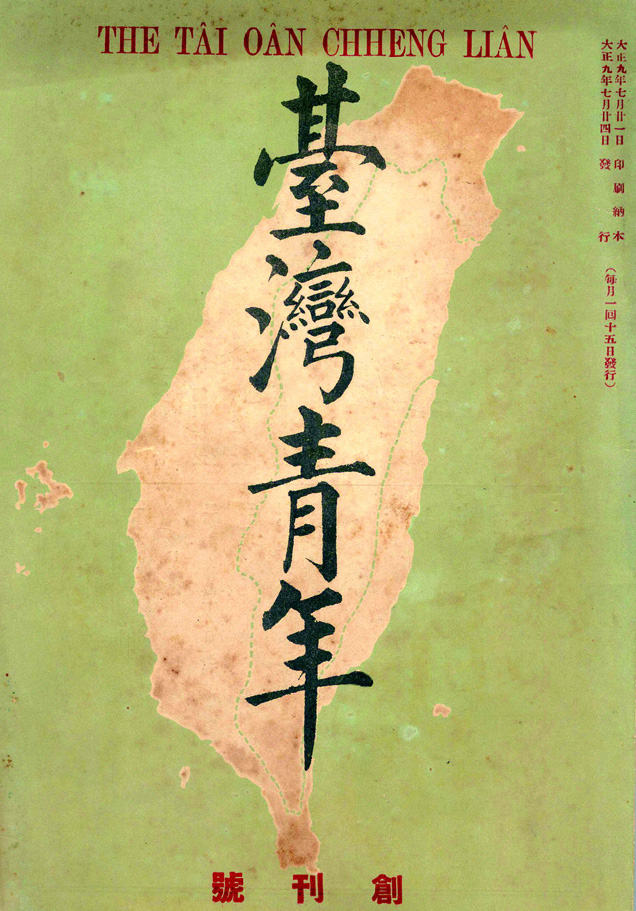 THE TÂI OÂN CHHENG LIÂN
大正九年七月廿一日 印刷納本
大正九年七月廿四日 發行 (每月一回十五日發行)
臺灣青年
創刊號